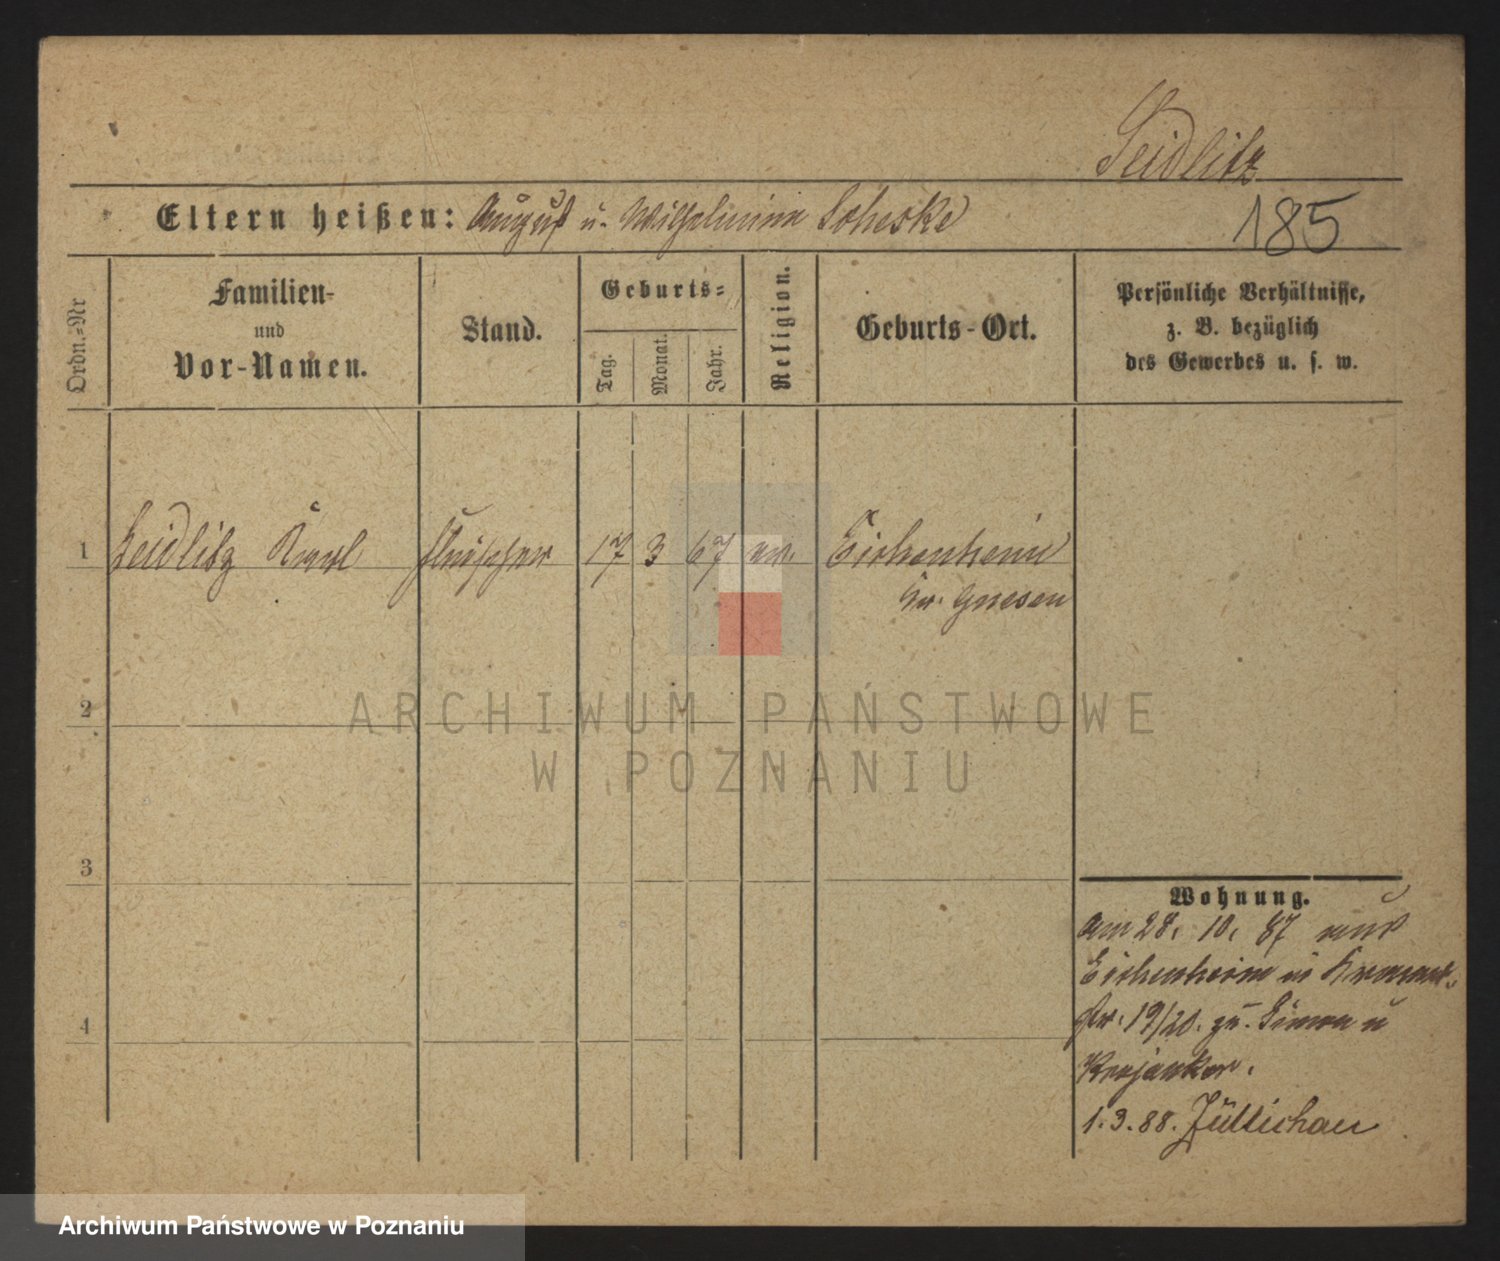 Seidlitz
Eltern heißen: August u. Wilhelmine Scheske
185
Ordn.=Nr
Familien-
und
Vor-Namen.
Stand.
Geburts=
Tag.
Monat.
Jahr.
Religion.
Geburts-Ort.
Persönliche Verhältnisse,
z. B. bezüglich
des Gewerbes u. s. w.
1 Seidlitz Karl Fleischer 17 3 67 ev. Eichenhein
Kr. Gnesen
2
3
4
Wohnung.
am 28. 10. 87 aus
Eichenheim in
str. 19/20. zu Simon u
1. 3. 88. Züllichau
ARCHIWUM PAŃSTWOWE
W POZNANIU
Archiwum Państwowe w Poznaniu